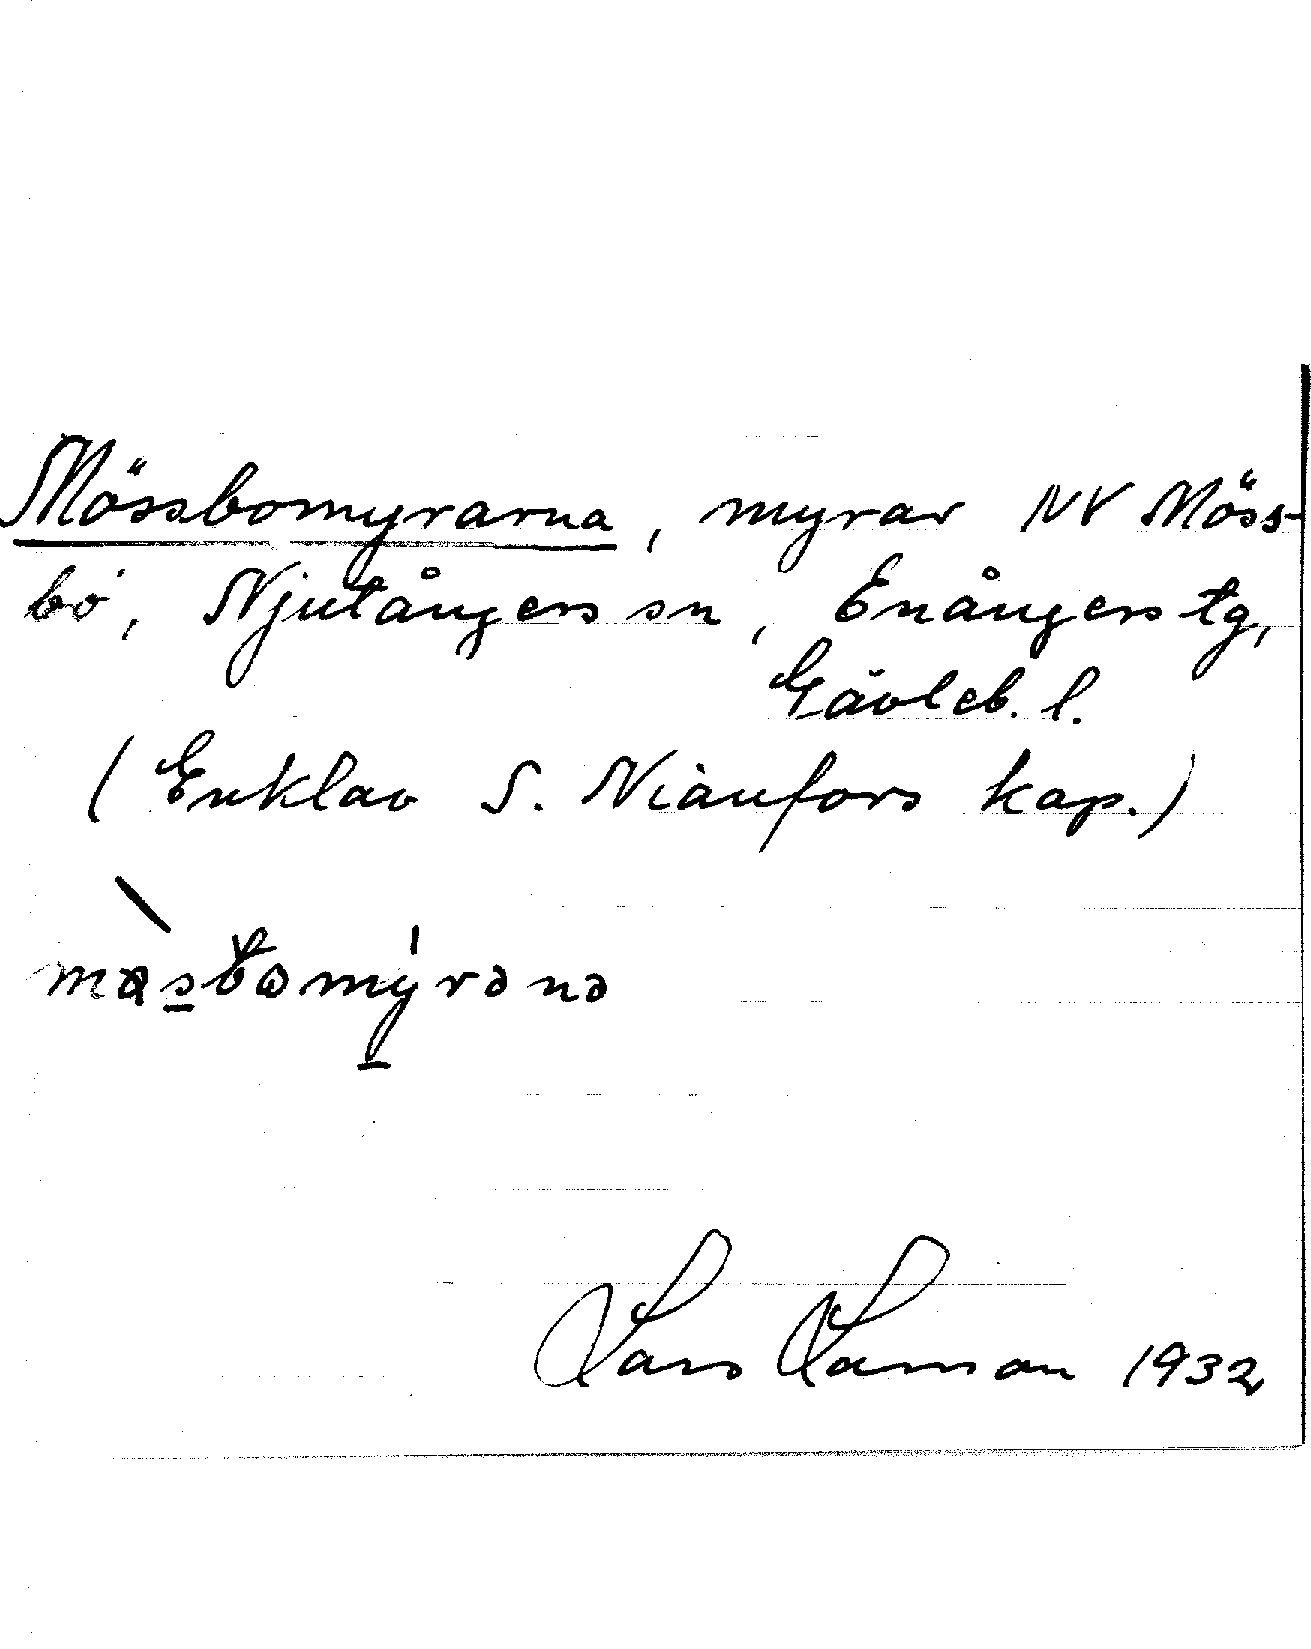 Mössbomyrarna, myrar NV Möss-
bo, Njutångers sn, Enångers tg,
Gävleb. l.
(Enklav S. Nianfors kap.)
Lars Larsson 1932